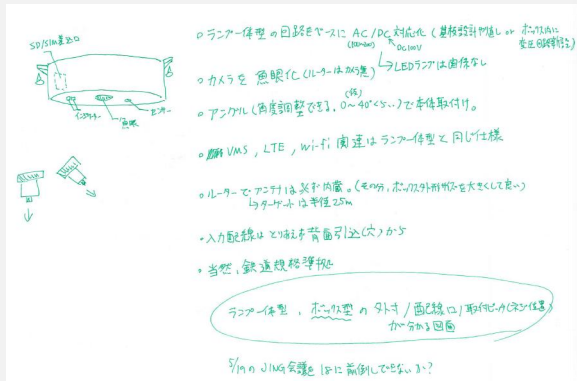 SD/SIM差込口
インジケーター
魚眼
センサー
○ランプ一体型の回路をベースに AC/DC対応化(基板設計やり直し or ボックス内に
(100~240V)
DC100V
→LEDランプは関係なし
○カメラを魚眼化(ルーターはカメラ無)
(仮)
○アングル(角度調整できる、0~40°くらい)で本体取付け。
VMS, LTE, wi-fi 関連はランプ一体型と同じ仕様
○ルーターでアンテナは必ず内蔵。(その分、ボックス外形サイズを大きくして良い)
→ターゲットは半径25m
・入力配線はとりあえず背面引込(穴)から
・当然、鉄道規格準拠
ランプ一体型、ボックス型の外寸/配線口/取付ピッチ(ネジ位置)
が分かる図面
5/19のJING会議 に前倒しできないか?